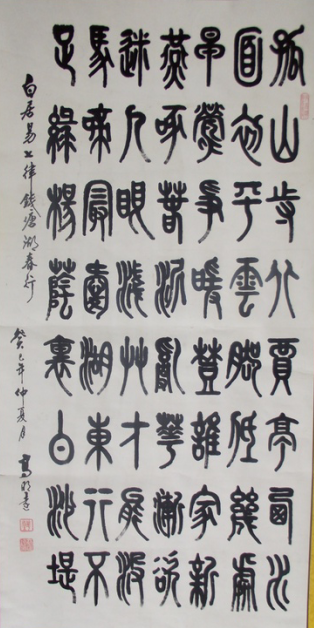 孤山寺北賈亭西水
面初平雲腳低幾處
早鶯爭暖樹誰家新
燕啄春泥亂華漸欲
迷人眼淺艸才能沒
馬蹄最愛湖東行不
足綠楊蔭裏白沙堤
白居易七律錢塘湖春行
癸巳年仲夏月